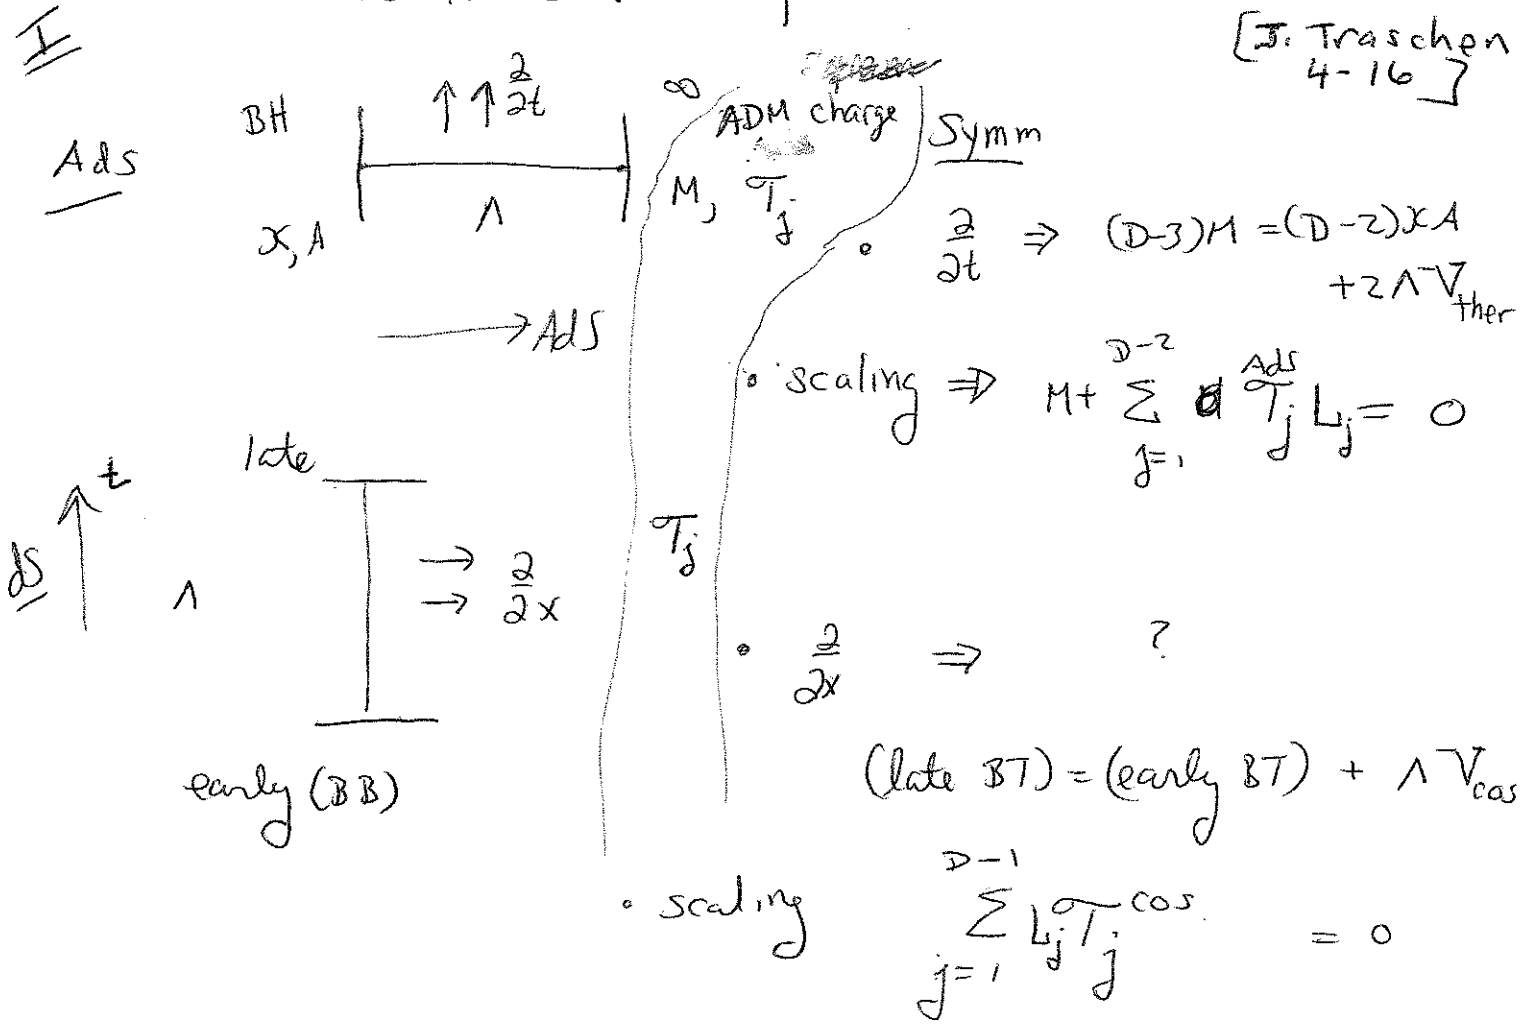 I
[J. Traschen
4-16]
AdS
BH
↑ ↑ ∂/∂t
∞
ADM charge
Symm
Λ
κ, A
M, 𝒯_j
• ∂/∂t ⇒ (D-3)M = (D-2)κA
+2ΛV_ther
→ AdS
• scaling ⇒ M + Σ_{j=1}^{D-2} 𝒯_j^{AdS} L_j = 0
late
t
dS
Λ
→ → ∂/∂x
𝒯_j
• ∂/∂x ⇒ ?
early (BB)
(late BT) = (early BT) + ΛV_cos
• scaling Σ_{j=1}^{D-1} L_j 𝒯_j^{cos} = 0